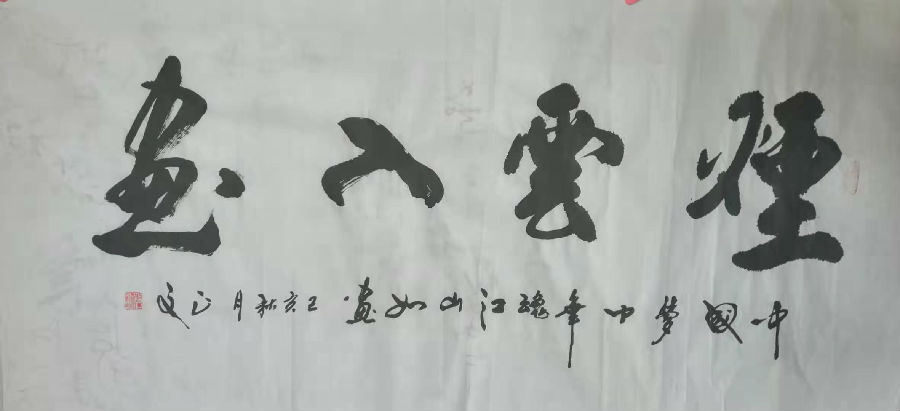 煙雲入畫
中國夢中華魂江山如畫 己亥秋月 正文